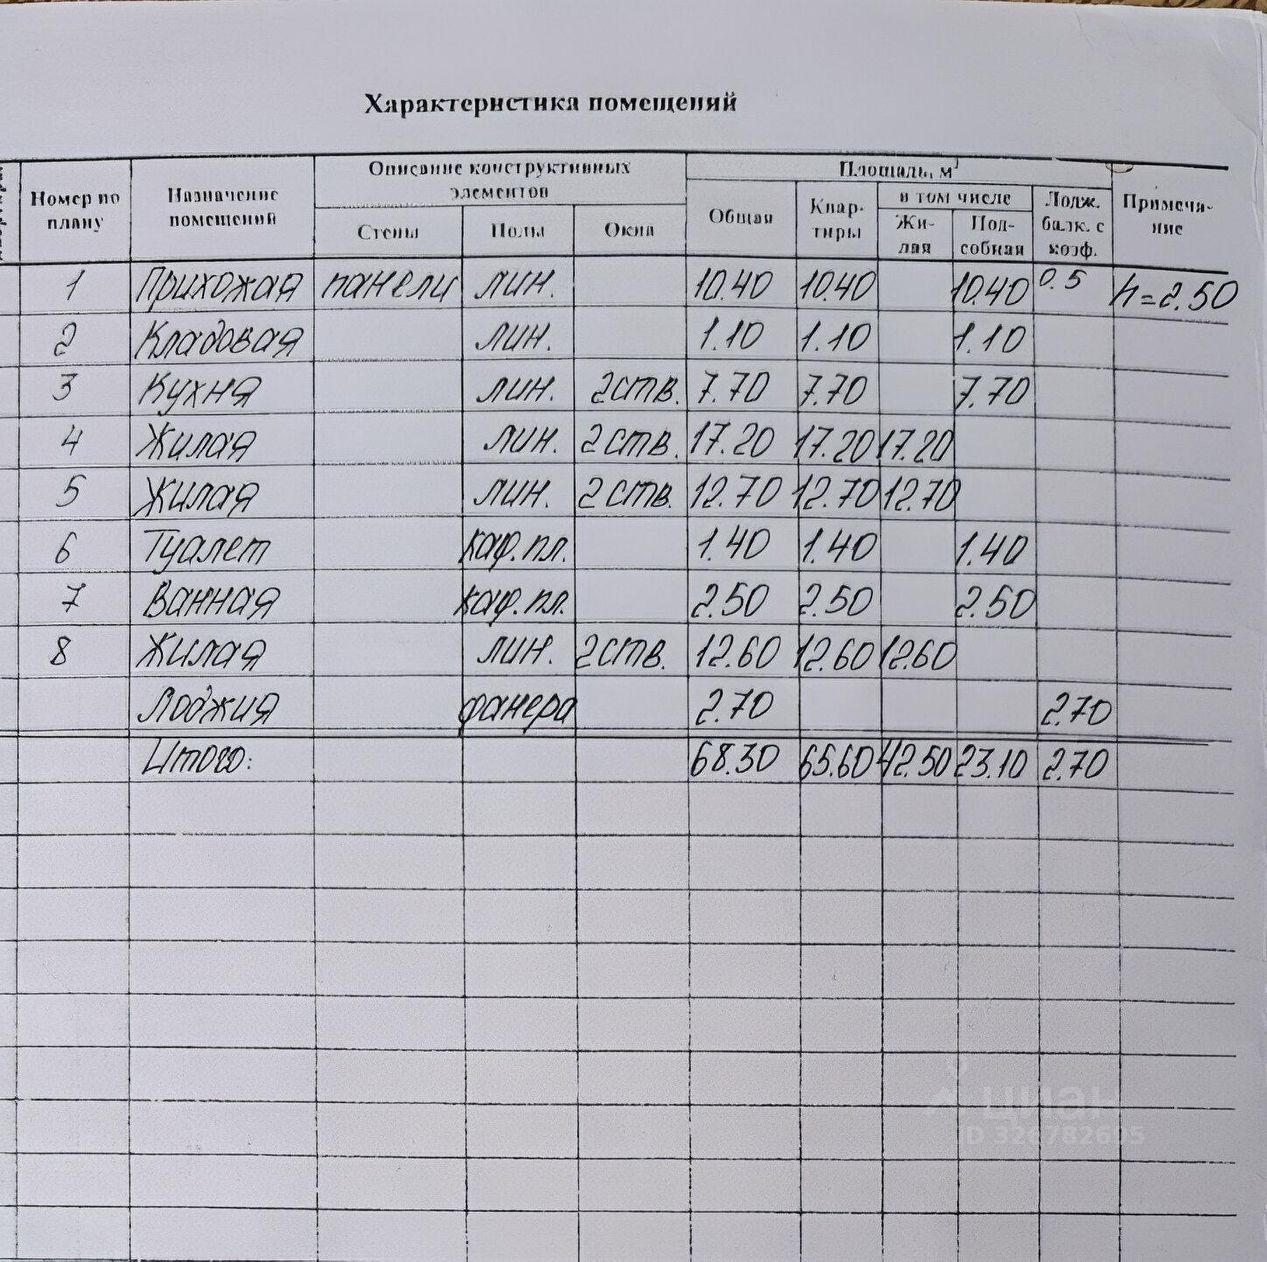 Характеристика помещений
Номер по плану | Назначение помещений | Описание конструктивных элементов | Площадь, м² | Примечание
Стены | Полы | Окна | Общая | Квартиры | в том числе | Лодж. балк. с коэф.
Жилая | Подсобная
1 Прихожая панели лин. 10.40 10.40 10.40 0.5 h=2.50
2 Кладовая лин. 1.10 1.10 1.10
3 Кухня лин. 2 ств. 7.70 7.70 7.70
4 Жилая лин. 2 ств. 17.20 17.20 17.20
5 Жилая лин. 2 ств. 12.70 12.70 12.70
6 Туалет каф. пл. 1.40 1.40 1.40
7 Ванная каф. пл. 2.50 2.50 2.50
8 Жилая лин. 2 ств. 12.60 12.60 12.60
Лоджия фанера 2.70 2.70
Итого: 68.30 65.60 42.50 23.10 2.70
циан